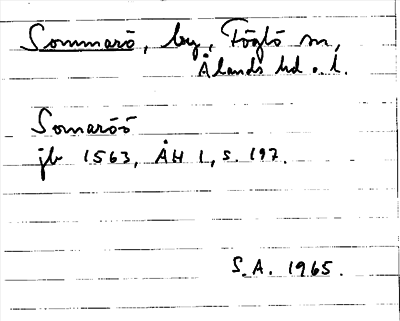 Sommarö, by, Föglö sn,
Ålands hd o. l.
Somaröö
jb 1563, ÅH 1, s. 197.
S.A. 1965.